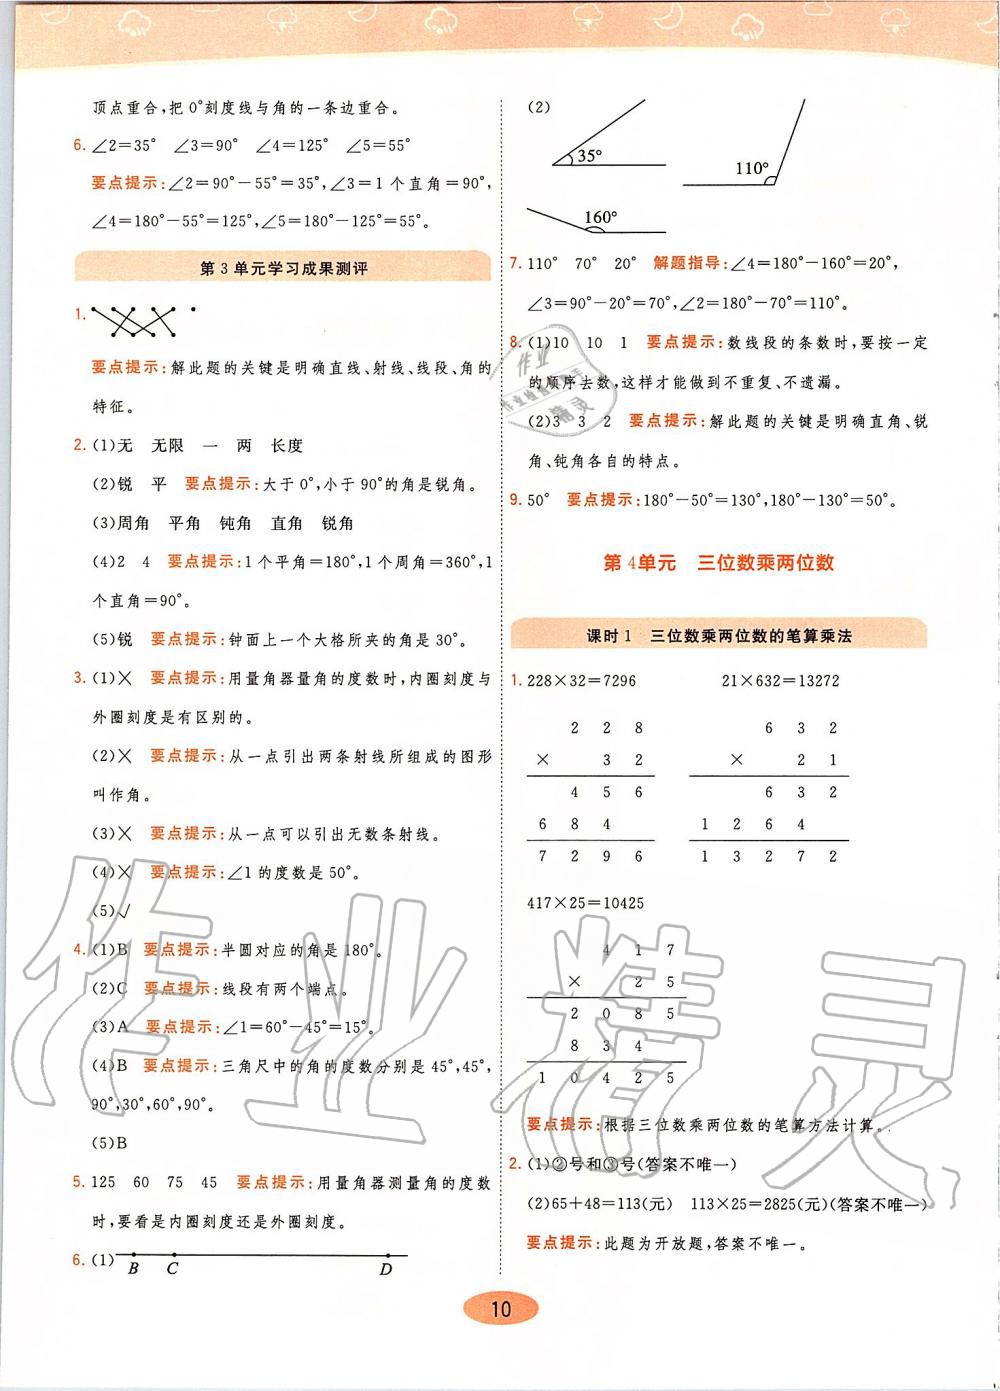 顶点重合,把0°刻度线与角的一条边重合。
6. ∠2=35° ∠3=90° ∠4=125° ∠5=55°
要点提示:∠2=90°-55°=35°,∠3=1个直角=90°,
∠4=180°-55°=125°,∠5=180°-125°=55°。
第3单元学习成果测评
1.
要点提示:解此题的关键是明确直线、射线、线段、角的
特征。
2. (1)无 无限 一 两 长度
(2)锐 平 要点提示:大于0°,小于90°的角是锐角。
(3)周角 平角 钝角 直角 锐角
(4)2 4 要点提示:1个平角=180°,1个周角=360°,1
个直角=90°。
(5)锐 要点提示:钟面上一个大格所夹的角是30°。
3. (1)× 要点提示:用量角器量角的度数时,内圈刻度与
外圈刻度是有区别的。
(2)× 要点提示:从一点引出两条射线所组成的图形
叫作角。
(3)× 要点提示:从一点可以引出无数条射线。
(4)× 要点提示:∠1的度数是50°。
(5)√
4. (1)B 要点提示:半圆对应的角是180°。
(2)C 要点提示:线段有两个端点。
(3)A 要点提示:∠1=60°-45°=15°。
(4)B 要点提示:三角尺中的角的度数分别是45°,45°,
90°,30°,60°,90°。
(5)B
5. 125 60 75 45 要点提示:用量角器测量角的度数
时,要看是内圈刻度还是外圈刻度。
6. (1)
B C D
(2)
35°
110°
160°
7. 110° 70° 20° 解题指导:∠4=180°-160°=20°,
∠3=90°-20°=70°,∠2=180°-70°=110°。
8. (1)10 10 1 要点提示:数线段的条数时,要按一定
的顺序去数,这样才能做到不重复、不遗漏。
(2)3 3 2 要点提示:解此题的关键是明确直角、锐
角、钝角各自的特点。
9. 50° 要点提示:180°-50°=130°,180°-130°=50°。
第4单元 三位数乘两位数
课时1 三位数乘两位数的笔算乘法
1. 228×32=7296 21×632=13272
2 2 8 6 3 2
× 3 2 × 2 1
4 5 6 6 3 2
6 8 4 1 2 6 4
7 2 9 6 1 3 2 7 2
417×25=10425
4 1 7
× 2 5
2 0 8 5
8 3 4
1 0 4 2 5
要点提示:根据三位数乘两位数的笔算方法计算。
2. (1)②号和③号(答案不唯一)
(2)65+48=113(元) 113×25=2825(元)(答案不唯一)
要点提示:此题为开放题,答案不唯一。
10
作业精灵